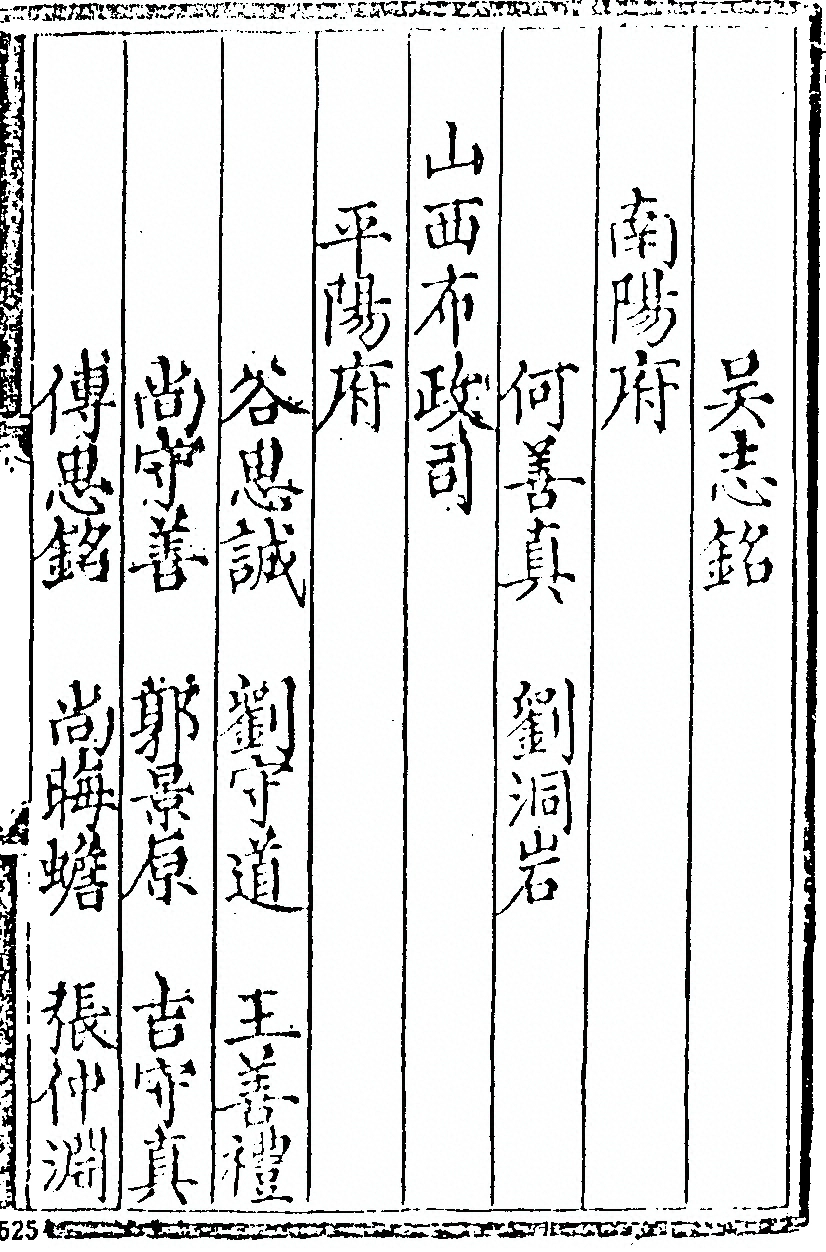 吴志銘
南陽府
何善真　劉洞岩
山西布政司
平陽府
谷思誠　劉守道　王善禮
尚守善　郭景原　吉守真
傅思銘　尚晦蟾　張仲淵
525